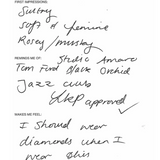 FIRST IMPRESSIONS:
Sultry
Soft & feminine
Rosey/muskey
REMINDS ME OF: Studio
Tom Ford Black Orchid
Jazz club
approved ✓
MAKES ME FEEL:
I should wear
diamonds when I
wear this